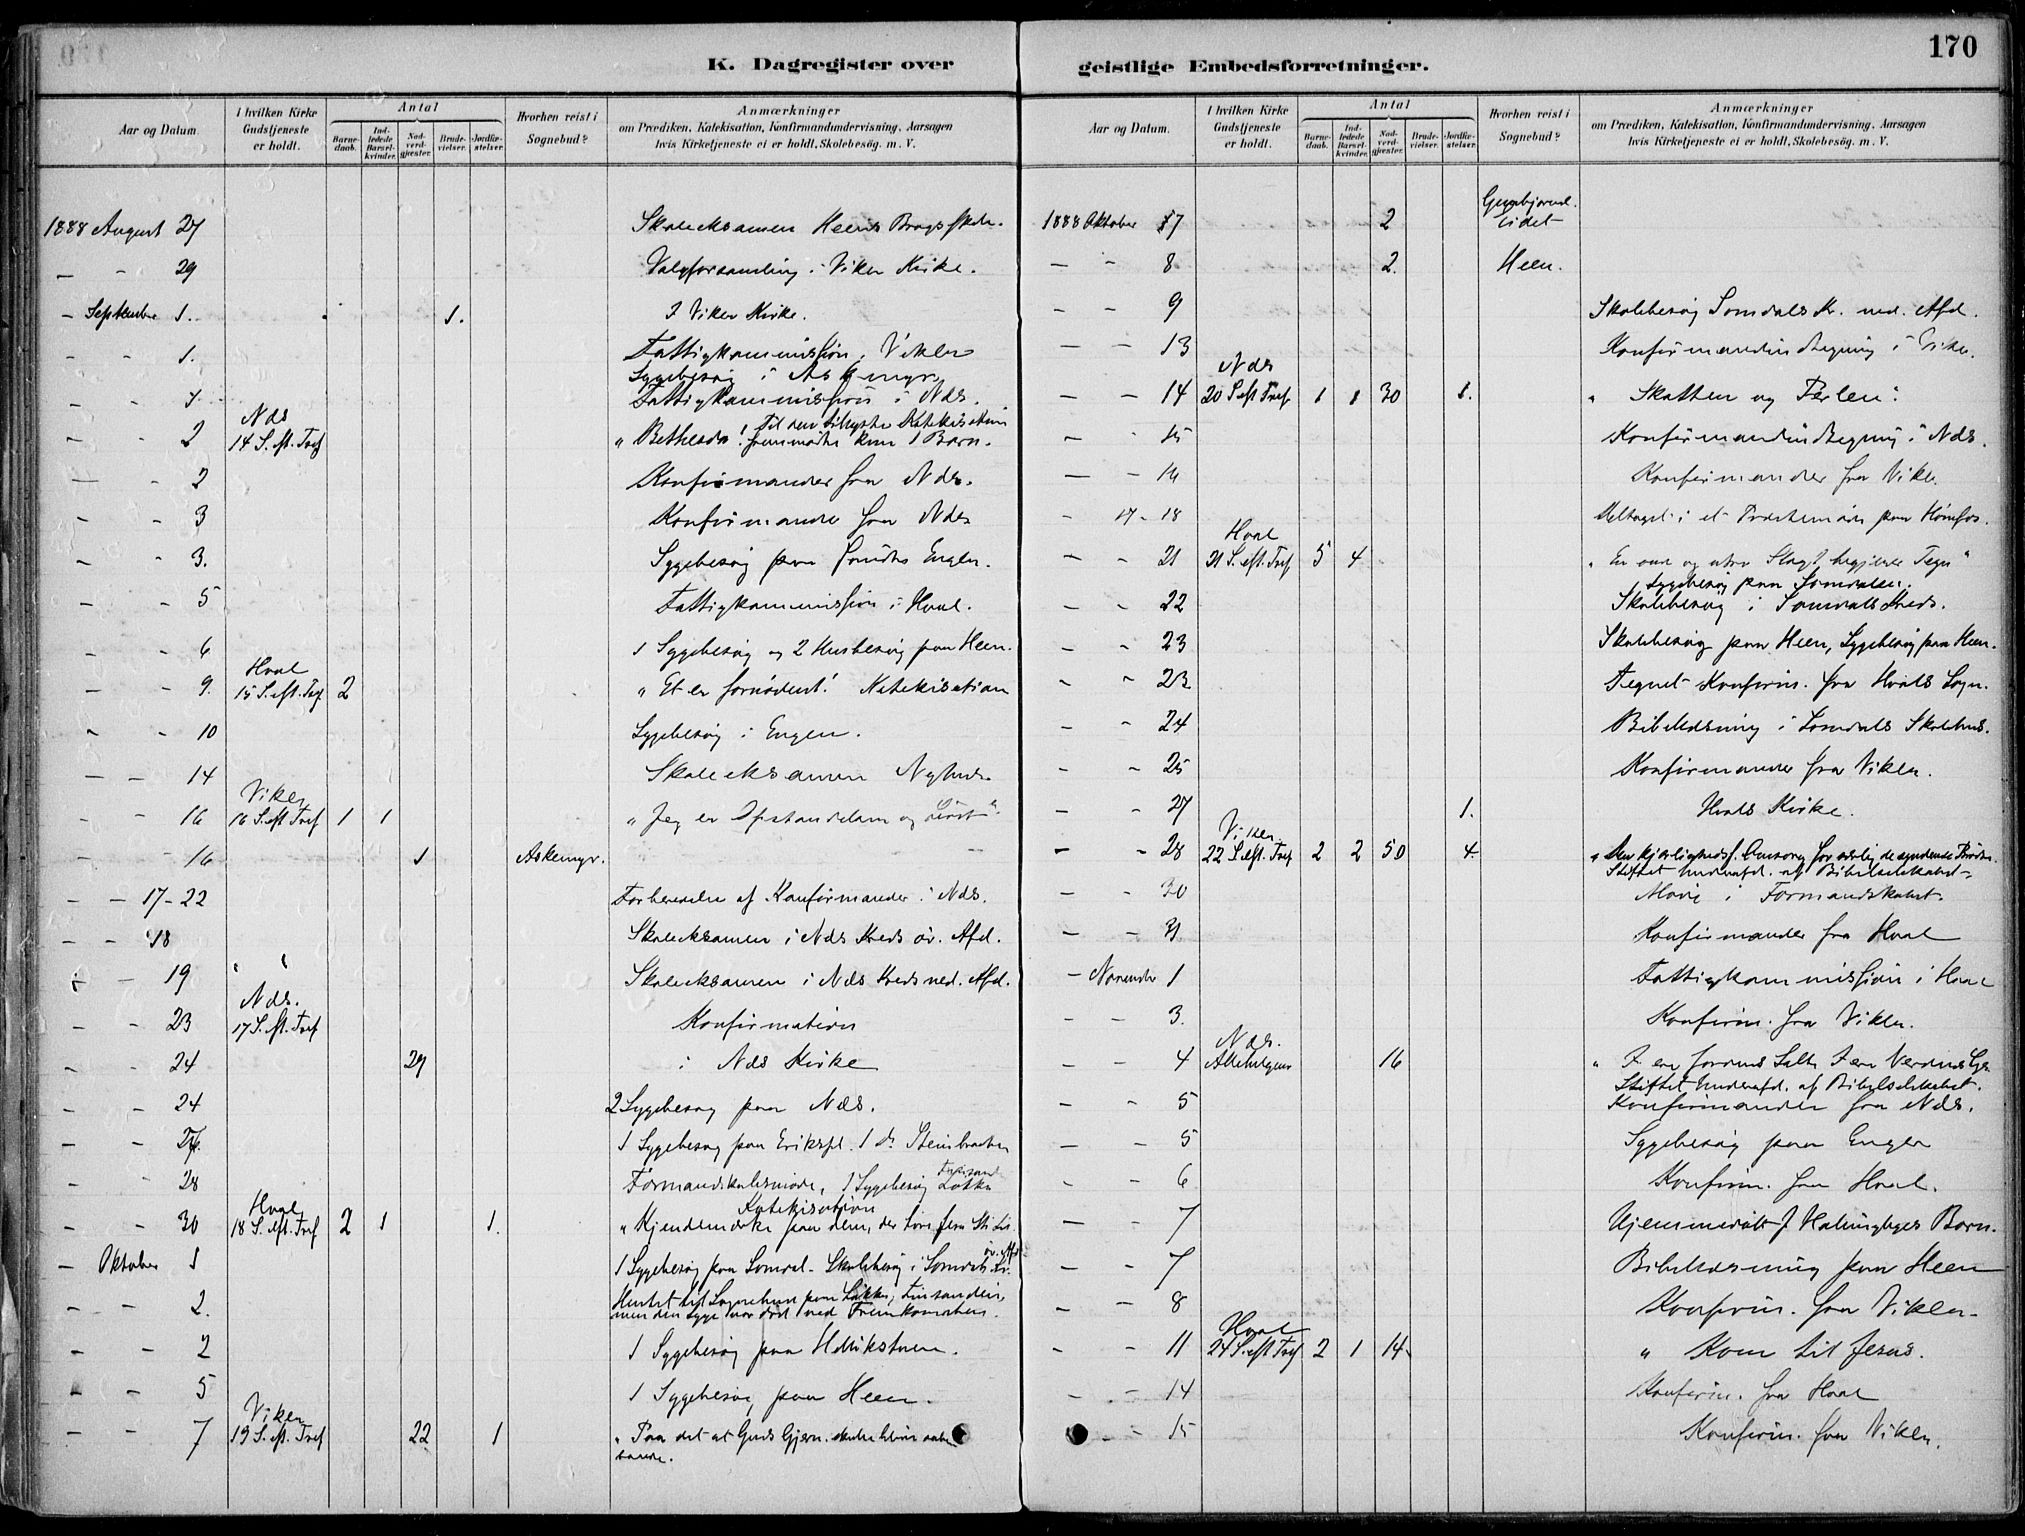 170
K. Dagregister over
geistlige Embedsforretninger.
Aar og Datum.
I hvilken Kirke Gudstjeneste er holdt.
Antal
Barnedaab.
Indledede Barselkvinder.
Nadverdgjester.
Brudevielser.
Jordfæstelser.
Hvorhen reist i Sognebud?
Anmærkninger
om Prædiken, Katekisation, Konfirmandundervisning, Aarsagen
hvis Kirketjeneste ei er holdt, Skolebesög. m. V.
1888 August 27 Skoleeksamen Heens
— - 29 Valgforsamling i Viker Kirke.
— September 1. 1. I Viker Kirke.
- - 1. Fattigkommission, Viker
Sygebesøg i Askemyr
Fattigkommission i Næs.
Næs
- - 2 14 S. eft. Tref „ Bethesda! Til den tilhyste Katekisation
fremmødte kun 1 Barn.
— - 2 Konfirmander fra Næs.
- - 3 Konfirmander fra Næs
- - 3. Sygebesøg paa Engen.
- - 5 Fattigkommission i Hval.
- - 6 1 Sygebesøg og 2 Husbesøg paa Heen.
Hval
- - 9. 15 S. eft. Tref 2 „ Et er fornødent! Katekisation
- - 10 Sygebesøg i Engen.
— — 14 Skoleeksamen
Viker
- - 16 16 S. eft. Tref 1 1 „ Jeg er Opstandelsen og Livet“
- - 16 1 Askemyr.
- - 17-22 Forberedelse af Konfirmander i Næs.
- - 18 Skoleeksamen i Næs Kreds øv. Afd.
- - 19 „ „ Skoleeksamen i Næs Kreds ned. Afd.
Næs.
- - 23 17 S. eft. Tref Konfirmation
- - 24 29 i Næs Kirke
- - 24 2 Sygebesøg paa Næs.
- - 1 Sygebesøg paa Erikspl. 1 do.
- - 28 Formandskabsmøde, 1 Sygebesøg Løkka
Hval
Katekisation
- - 30 18 S. eft. Tref 2 1 1. „ Kjendemærke paa dem, der
— Oktober 1 1 Sygebesøg paa Somdal - Skolebesøg i Somdals Kr.
øv. Afd
- - 2. Hentet til Sognebud paa Løkka,
men den Syge var død ved Fremkomsten.
- - 2 1 Sygebesøg paa
- - 5 1 Sygebesøg paa Heen.
Viker
- - 7 19 S. eft. Tref 22 1 „ Paa det at Guds Gjern. skulde blive aaben-
bare.
Aar og Datum.
I hvilken Kirke Gudstjeneste er holdt.
Antal
Barnedaab.
Indledede Barselkvinder.
Nadverdgjester.
Brudevielser.
Jordfæstelser.
Hvorhen reist i Sognebud?
Anmærkninger
om Prædiken, Katekisation, Konfirmandundervisning, Aarsagen
hvis Kirketjeneste ei er holdt, Skolebesög. m. V.
1888 Oktober 7 2
— - 8 2. Heen.
- - 9 Skolebesøg Somdals Kr. ned. Afd.
— - 13 Konfirmandindtegning i Viker.
Næs
— - 14 20 S. eft. Tref 1 1 30 1. „ Skatten og Perlen:
— - 15 Konfirmandindtegning i Næs.
— - 16 Konfirmander fra Viker
- 17 - 18 Deltaget i et Præstemøde paa Hønefos.
Hval
— - 21 21 S. eft. Tref 5 4 „ En ond og utro Slægt begjærer Tegn“
1 Sygebesøg paa Somdalen.
— - 22 Skolebesøg i Somdals Kreds.
- - 23 Skolebesøg paa Heen, Sygebesøg paa Heen.
- - 23 Tegnet Konfirm. fra Hvals Sogn.
- - 24 Bibellæsning i Somdals Skolehus.
- - 25 Konfirmander fra Viker.
- - 27 1. Hvals Kirke.
Viker
— - 28 22 S. eft. Tref 2 2 50 4.
Stiftet Underafd. af Bibelselskabet.
- - 30 Møde i Formandskabet.
— - 31 Konfirmander fra Hval
— November 1 Fattigkommission i Hval
- - 3. Konfirm. fra Viker.
Næs.
— - 4 Allehelgens 16 „ I ere Jordens Salt, I ere Verdens Lys
Stiftet Underafd. af Bibelselskabet.
— - 5 Konfirmander fra Næs.
— - 5 Sygebesøg paa Engen
- - 6 Konfirm. fra Hval.
— - 7 Hjemmedøbt Børn.
— - 7 Bibellæsning paa Heen
— - 8 Konfirm. fra Viker.
Hval
- - 11 24 S. eft Tref 2 1 14 „ Kom til Jesus.
- - 14 Konfirm. fra Hval
- - 15 Konfirm. fra Viker.